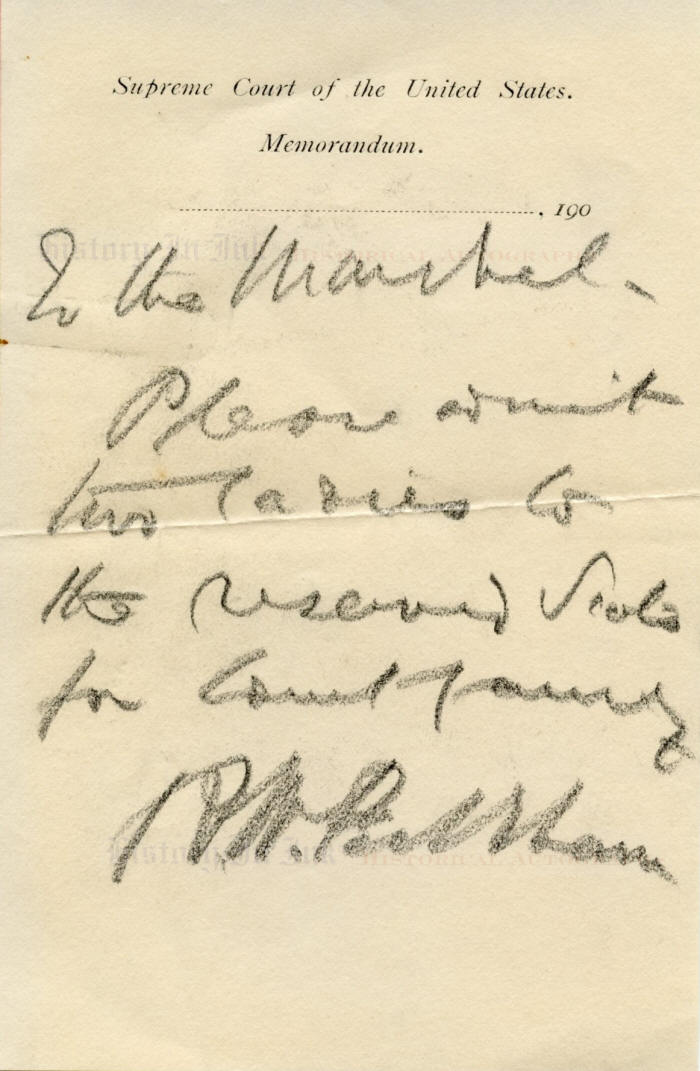 Supreme Court of the United States.
Memorandum.
, 190
History In Ink HISTORICAL AUTOGRAPHS
To the Marshal.
Please admit
two ladies to
the reserved seats
for Court family
R W Peckham
History In Ink HISTORICAL AUTO